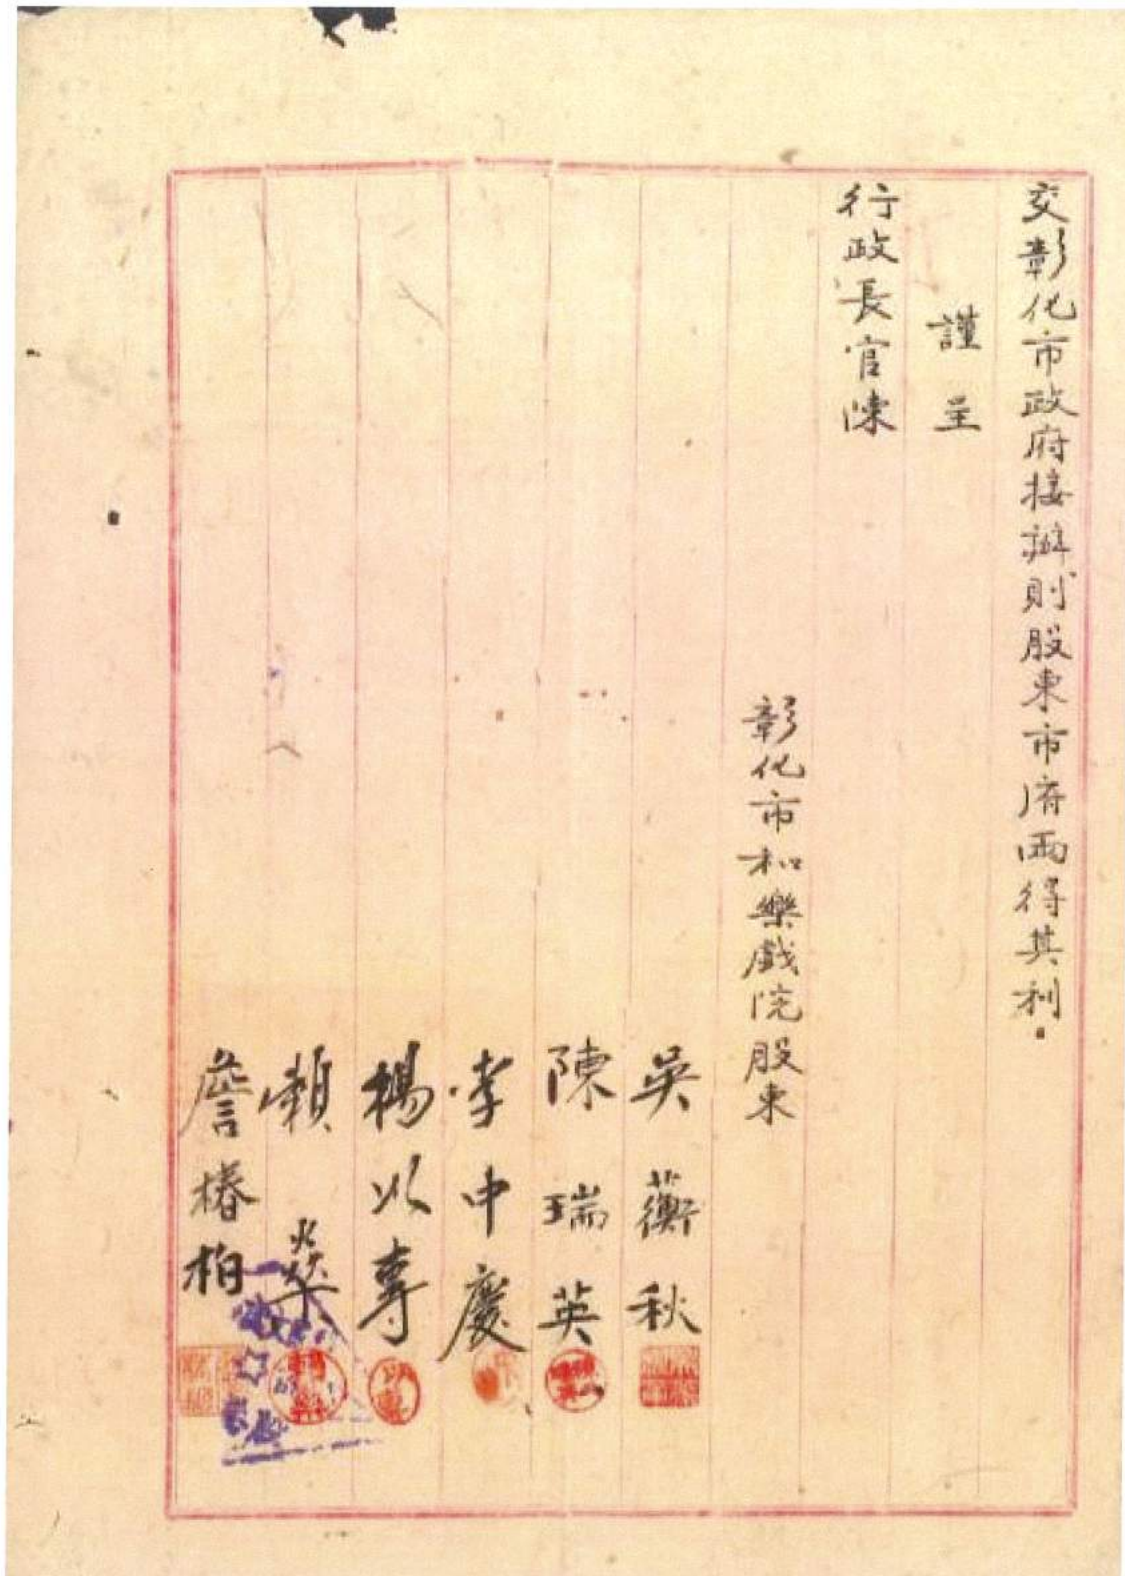 交彰化市政府接辦則股東市府両得其利。
謹呈
行政長官陳
彰化市和樂戲院股東
吳蘅秋
陳瑞英
李中慶
楊以專
賴燊
詹椿柏